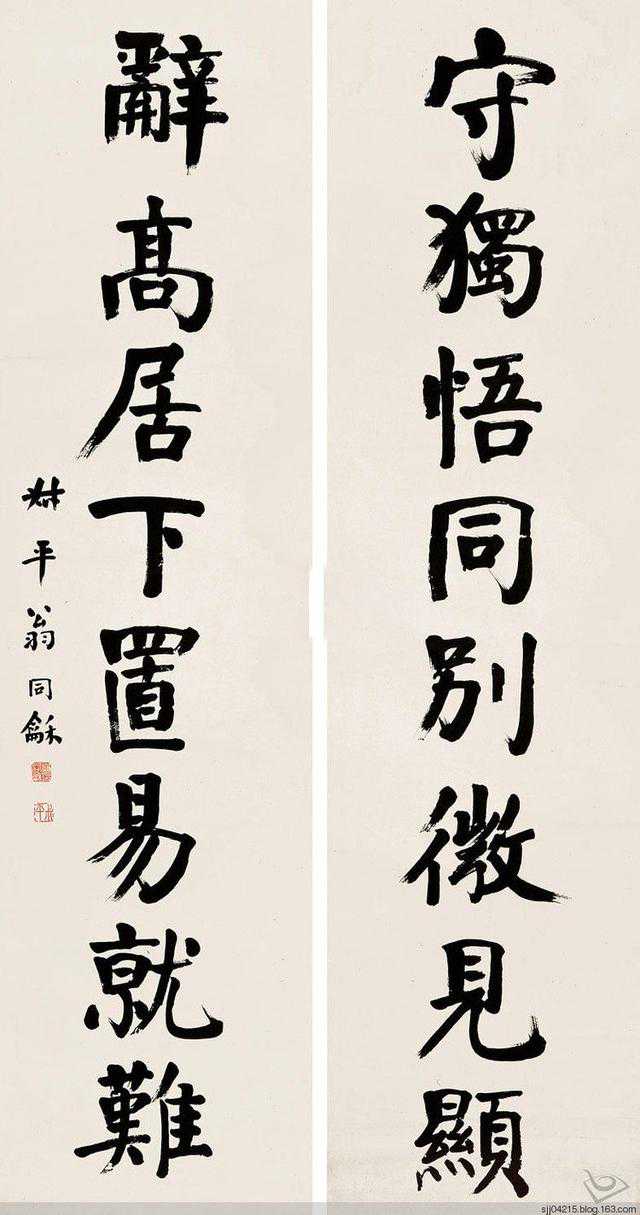 守獨悟同別微見顯
辭高居下置易就難
叔平翁同龢
sjj04215.blog.163.com